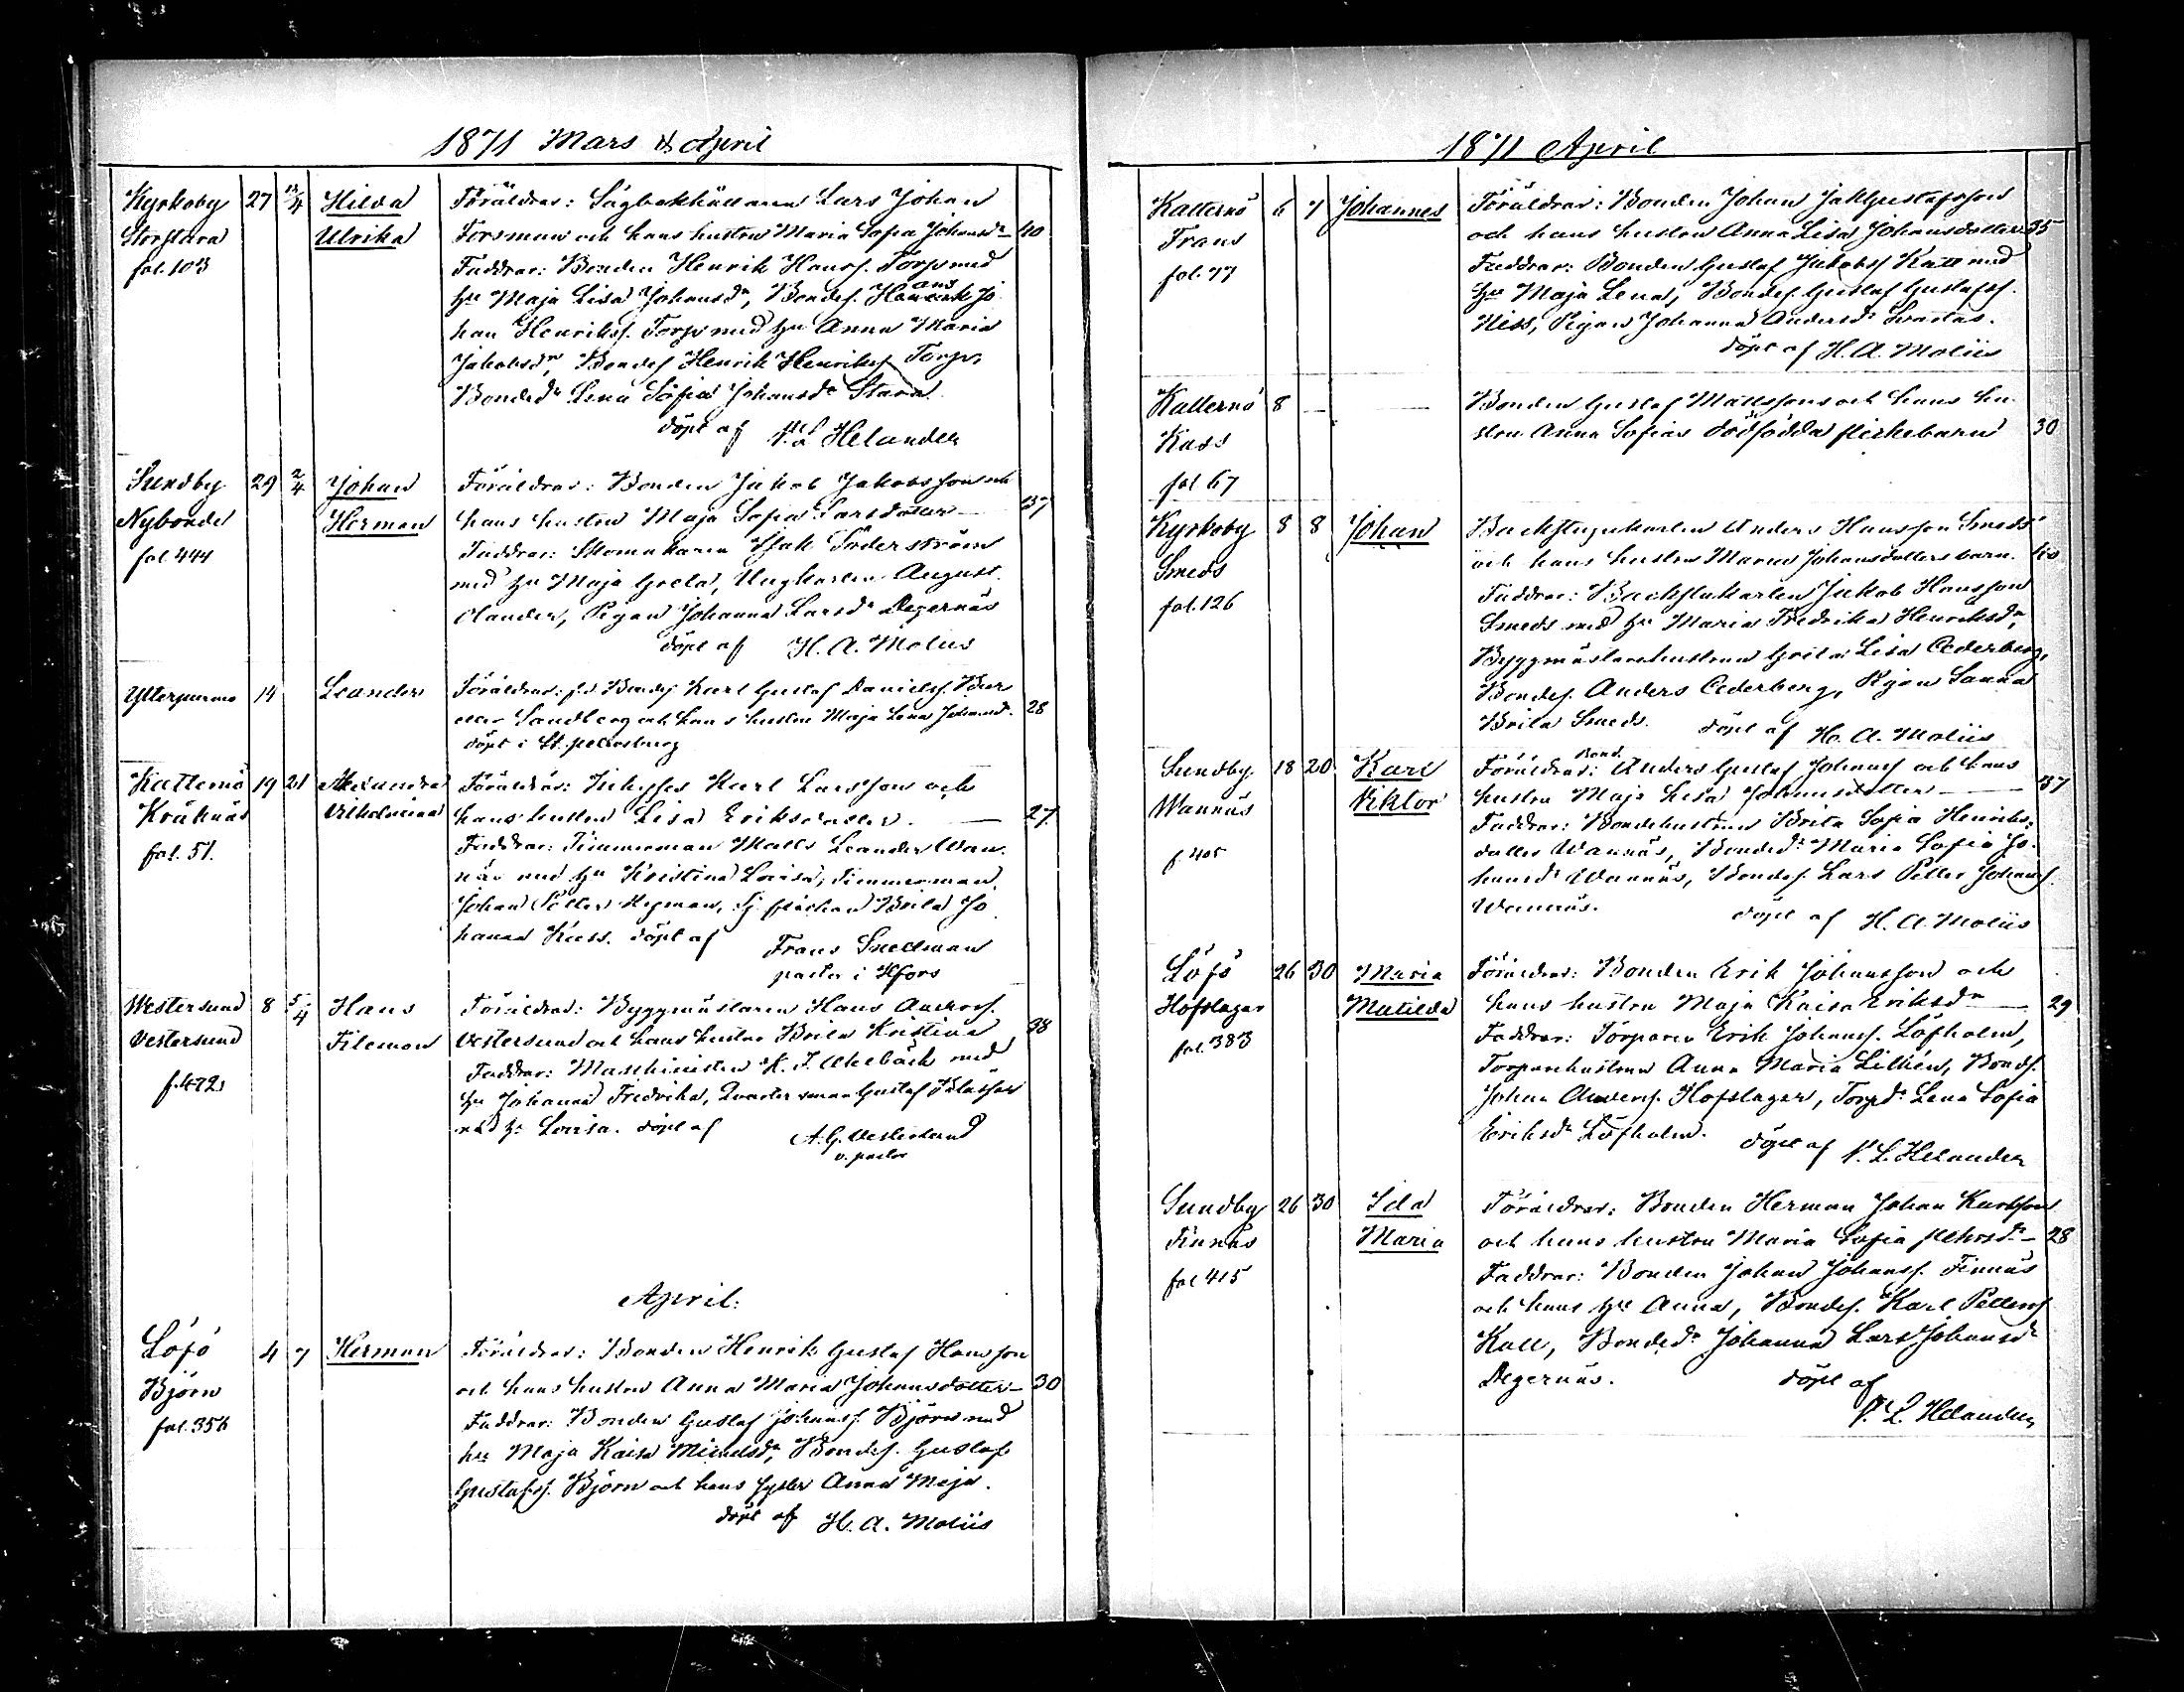 1871 Mars & April
Kyrkoby 27 12/4 Hilda Föräldrar: Sågbokhållaren Lars Johan
Storstara Ulrika Forsman och hans hustru Maria Sofia Johansdr 40
fol. 103 Faddrar: Bonden Henrik Hanss. Torp med
hu Maja Lisa Johansdr, Bondes. Hans Jo
han Henrikss. Torp med hu Anna Maria
Jakobsdr, Bondes Henrik Henrikss Torp,
Bondedr Lena Sofia Johansdr Stara.
döpt af Helander
Sundby 29 2/4 Johan Föräldrar: Bonden Jakob Jakobsson och
Nybonde Herman hans hustru Maja Sofia Larsdotter 37
fol 444 Faddrar: Skomakaren Isak Söderström
med hu Maja Greta, Ungkarlen August
Olander, Pigan Johanna Larsdr Degernäs
döpt af H. A. Molius
Ytterpurmo 14 Leander Föräldrar: f.d. Bondes Karl Gustaf Daniels.
Sandberg och hans hustru Maja Lena Johansdr. 28
döpt i St. petersburg
Katternö 19 21 Alexandra Föräldrar: Inhyses Karl Larsson och
Kråknäs Vilhelmina hans hustru Lisa Eriksdotter. 27
fol. 51. Faddrar: Timmerman Matts Leander Wan
när med hu Kristina Lovisa, Timmerman
Johan Petter Nyman, Brita Jo
hanna Kass. döpt af Frans Snellman
pastor i Hfors
Westersund 8 5/4 Hans Föräldrar: Byggmästaren Hans Anderss.
Vestersund Filemon Vestersund och hans hustru Brita Kristina 38
f. 472 Faddrar: Maschinisten K. J. Akebäck med
hu Johanna Fredrika, Gustaf
med hu Lovisa. döpt af A. G. Vesterlund
v. pastor
April.
Löfö 4 7 Herman Föräldrar: Bonden Henrik Gustaf Hansson
Björn och hans hustru Anna Maria Johansdotter 30
fol. 356 Faddrar: Bonden Gustaf Johanss. Björn med
hu Maja Kaisa Michelsdr, Bondes. Gustaf
Gustafss. Björn och hans syster Anna Maja.
döpt af H. A. Moliis
1871 April
Katternö 6 7 Johannes Föräldrar: Bonden Johan Jak Gustafsson
Frans och hans hustru Anna Lisa Johansdotter 35
fol. 77 Faddrar: Bonden Gustaf Jakobss Katt med
hu Maja Lena, Bondes. Gustaf Gustafss.
Hiss, Pigan Johanna Andersdr
döpt af H. A. Moliis
Katternö 8 — — Bonden Gustaf Mattssons och hans hu
Kass stru Anna Sofias dödfödda flickebarn 30
fol 67
Kyrkoby 8 8 Johan Backstugukarlen Anders Hansson Smeds
Smeds och hans hustru Maria Johansdotters barn. 40
fol. 126 Faddrar: Backstukarlen Jakob Hansson
Smeds med hu Maria Fredrika Henriksdr,
Byggmästarehustrun Greta Lisa Cederberg,
Bondes. Anders Cederberg, Pigan Sanna
Brita Smeds. döpt af H. A. Moliis
Sundby 18 20 Karl Föräldrar: Bond. Anders Gustaf Johanss och hans
Wannäs Viktor hustru Maja Lisa Johansdotter 37
f. 405 Faddrar: Bondehustrun Brita Sofia Henriks
dotter Wannäs, Bondedr Maria Sofia Jo
hansdr Wannäs, Bondes. Lars Petter Johanss.
Wannäs. döpt af H. A. Moliis
Löfö 26 30 Maria Föräldrar: Bonden Erik Johansson och
Hofslagar Matilda hans hustru Maja Kaisa Eriksdr 29
fol. 383 Faddrar: Torparen Erik Johanss. Löfholm,
Torparehustrun Anna Maria Lillién, Bonds.
Johan Anderss. Hofslagar, Torpdr Lena Sofia
Eriksdr Löfholm. döpt af P. L. Helander
Sundby 26 30 Ida Föräldrar: Bonden Herman Johan Karlsson
Finnäs Maria och hans hustru Maria Sofia Mehrsdr 28
fol 415 Faddrar: Bonden Johan Johanss. Finnäs
och hans hu Anna, Bondes. Karl Petterss
Kall, Bondedr Johanna Lars Johansdr
Degernäs. döpt af
P. L. Helander